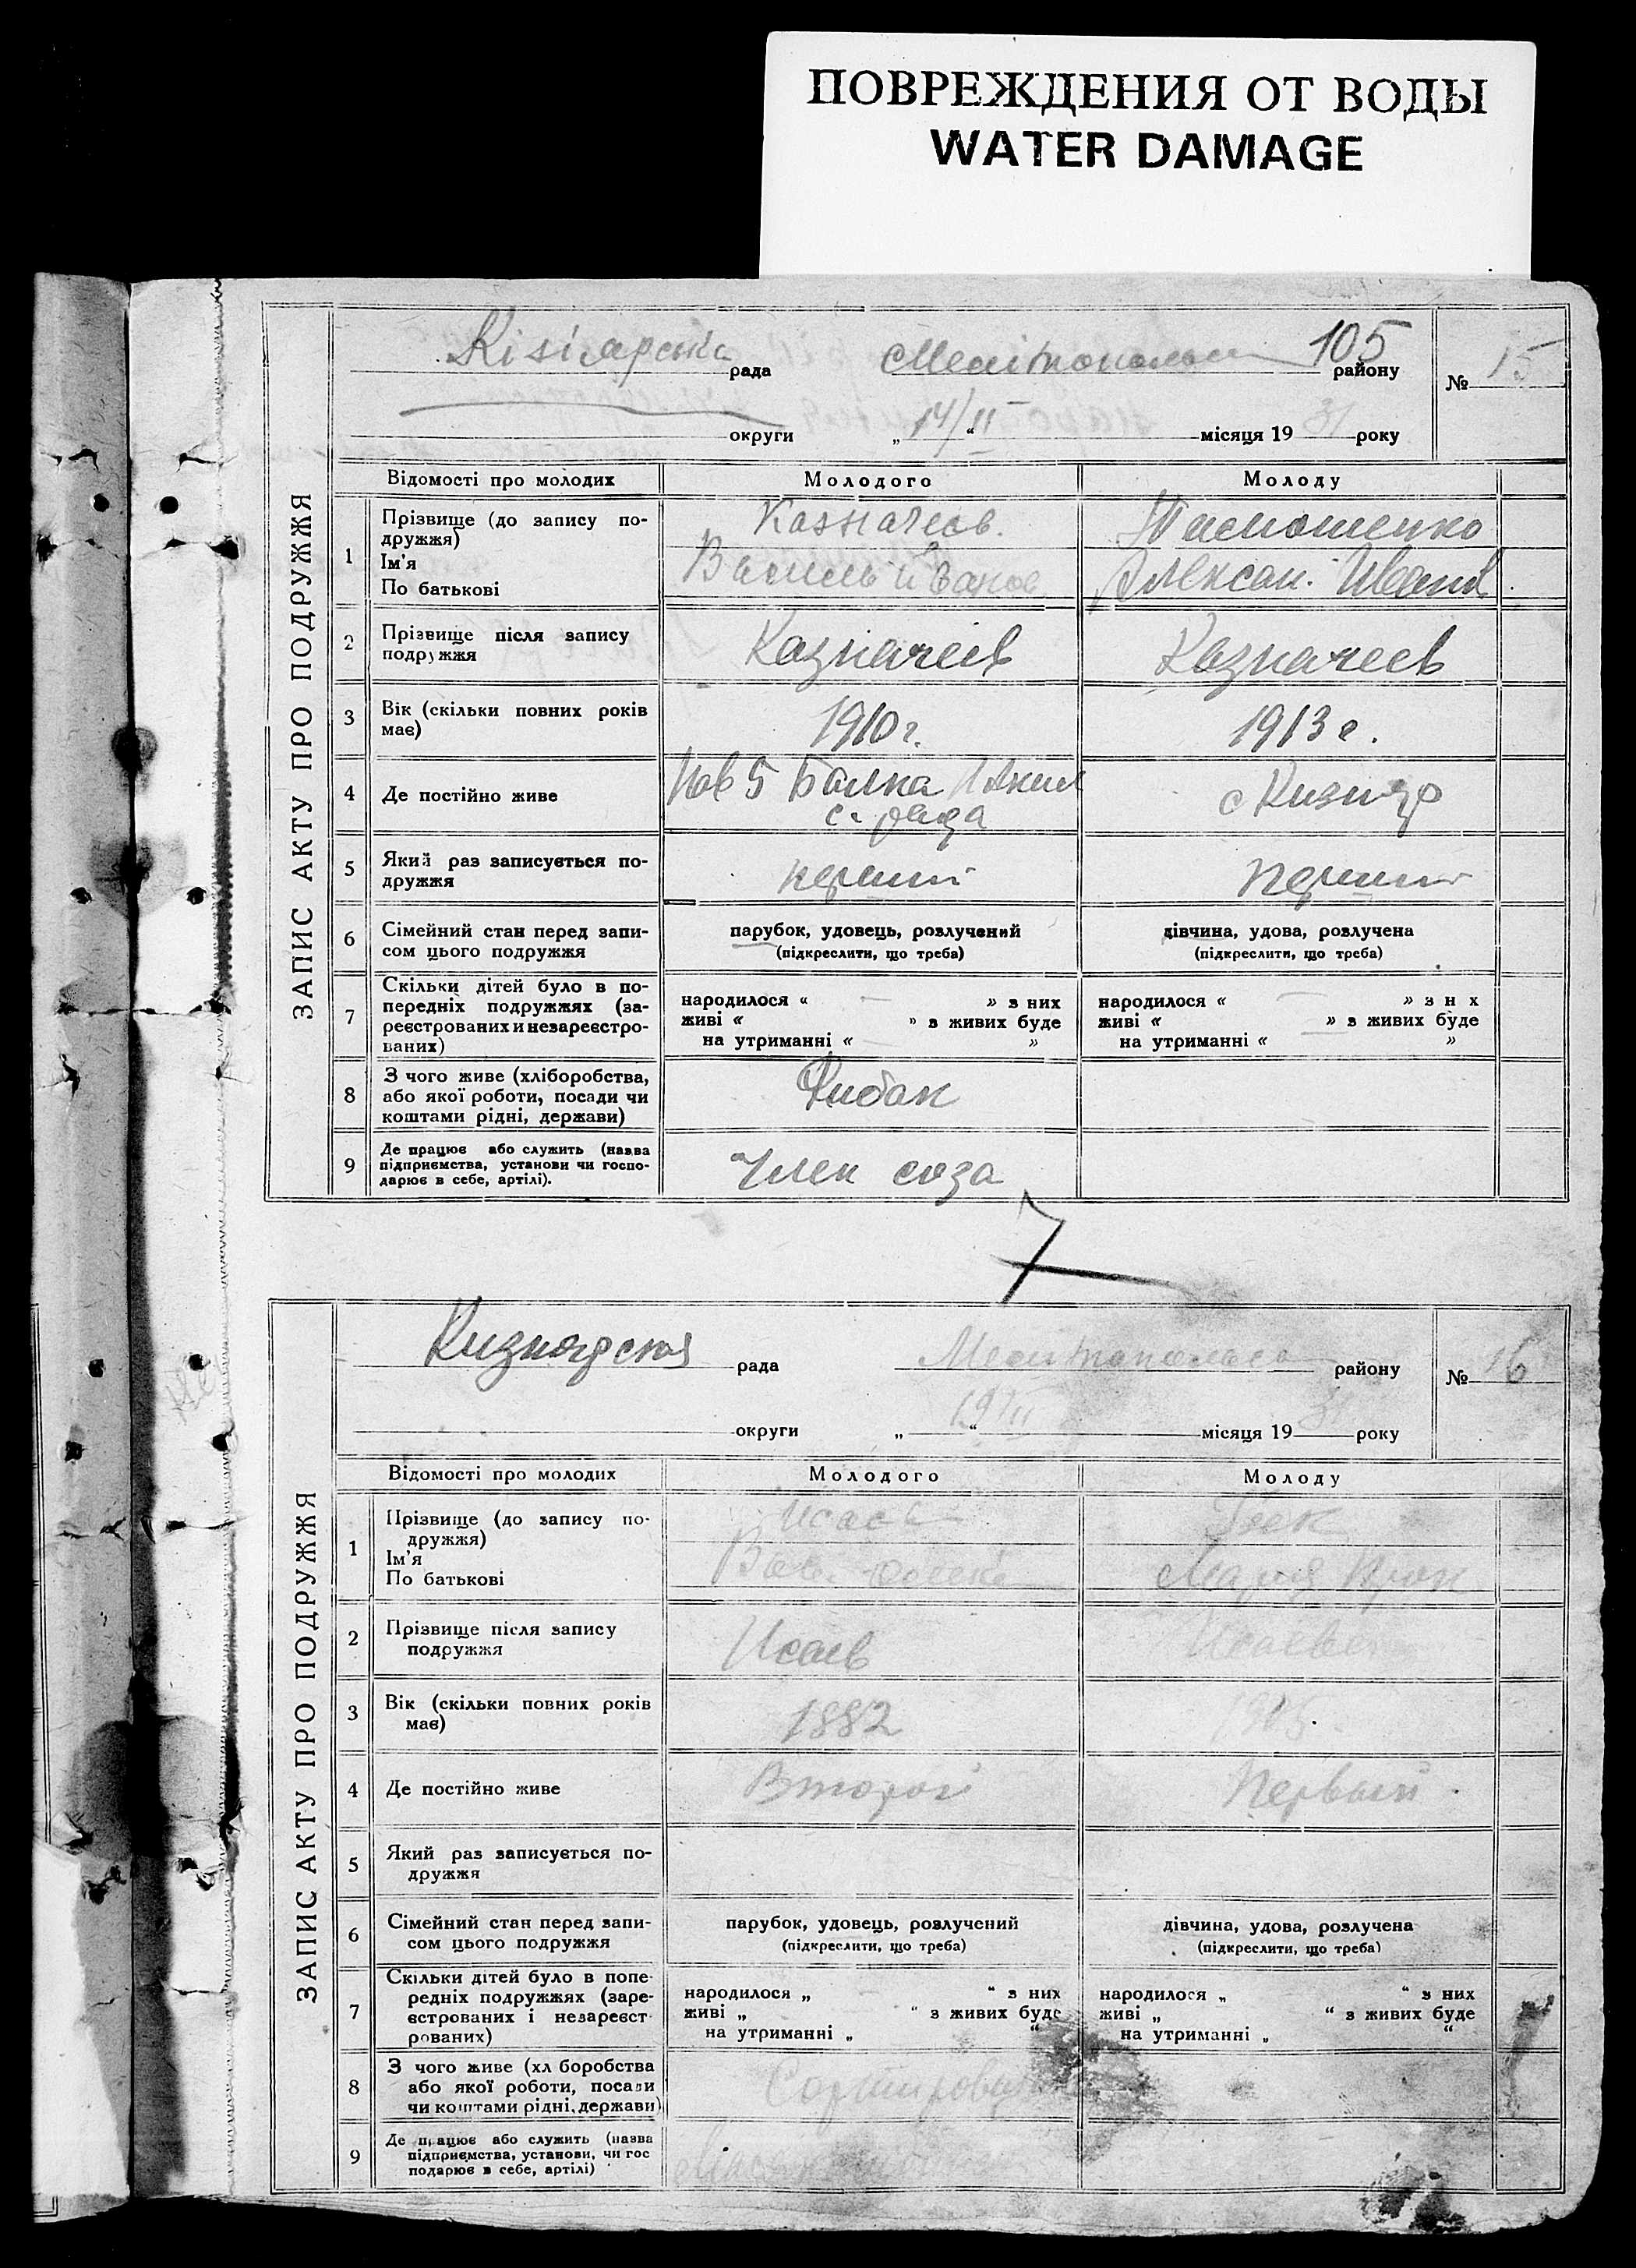 ПОВРЕЖДЕНИЯ ОТ ВОДЫ
WATER DAMAGE
ЗАПИС АКТУ ПРО ПОДРУЖЖЯ
Кізіарська рада 105 району № 15
округи „ 14/II “ місяця 19 31 року
Відомості про молодих Молодого Молоду
1 Прізвище (до запису по-
дружжя)
Ім'я
По батькові
Казначеев.
Тимошенко
2 Прізвище після запису
подружжя
Казначеев Казначеев
3 Вік (скільки повних років
має)
1910 г. 1913 г.
4 Де постійно живе
Балка
с. рада
с Кизияр
5 Який раз записується по-
дружжя
перший перший
6 Сімейний стан перед запи-
сом цього подружжя
парубок, удовець, розлучений
(підкреслити, що треба)
дівчина, удова, розлучена
(підкреслити, що треба)
7 Скільки дітей було в по-
передніх подружжях (за-
реєстрованих и незареєстро-
ваних)
народилося “ » з них
живі “ » з живих буде
на утриманні “ »
народилося “ » з н х
живі “ » з живих буде
на утриманні “ »
8 З чого живе (хліборобства,
або якої роботи, посади чи
коштами рідні, держави)
Рибак
9 Де працює або служить (назва
підприємства, установи чи госпо-
дарює в себе, артілі).
Член союза
7
ЗАПИС АКТУ ПРО ПОДРУЖЖЯ
рада району № 16
округи „ 19/II “ місяця 19 31 року
Відомості про молодих Молодого Молоду
1 Прізвище (до запису по-
дружжя)
Ім'я
По батькові
Исаев
Мария
2 Прізвище після запису
подружжя
Исаев
3 Вік (скільки повних років
має)
1882
4 Де постійно живе
Второй Первый
5 Який раз записується по-
дружжя
6 Сімейний стан перед запи-
сом цього подружжя
парубок, удовець, розлучений
(підкреслити, що треба)
дівчина, удова, розлучена
(підкреслити, що треба)
7 Скільки дітей було в попе-
редніх подружжях (заре-
єстрованих і незареєст-
рованих)
народилося „ “ з них
живі „ “ з живих буде
на утриманні „ “
народилося „ “ з них
живі „ “ з живих буде
на утриманні „ “
8 З чого живе (хл боробства
або якої роботи, посади
чи коштами рідні, держави)
9 Де працює або служить (назва
підприємства, установи, чи гос
подарює в себе, артілі)